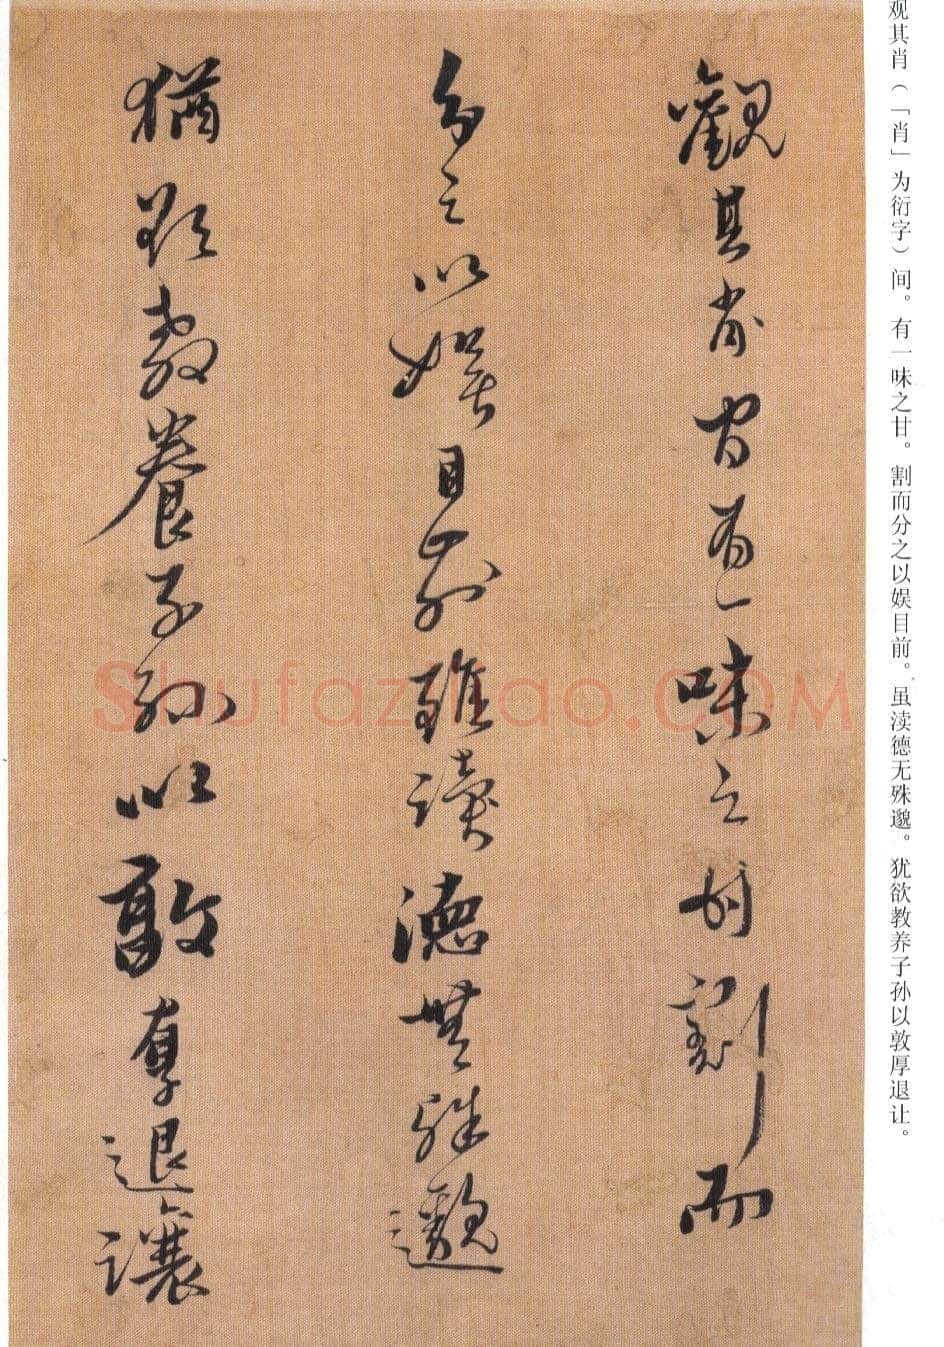 观其肖（「肖」为衍字）间。有一味之甘。割而分之以娱目前。虽渎德无殊邈。犹欲教养子孙以敦厚退让。
觀其肖间有一味之甘割而
分之以娱目前雖讀德無殊邈
猶欲敎養子孫以敦厚退讓
Shufazihao.COM